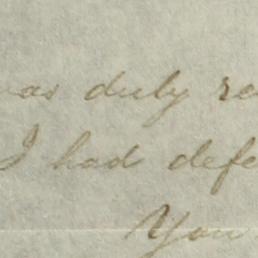 was duly re
I had defe
You